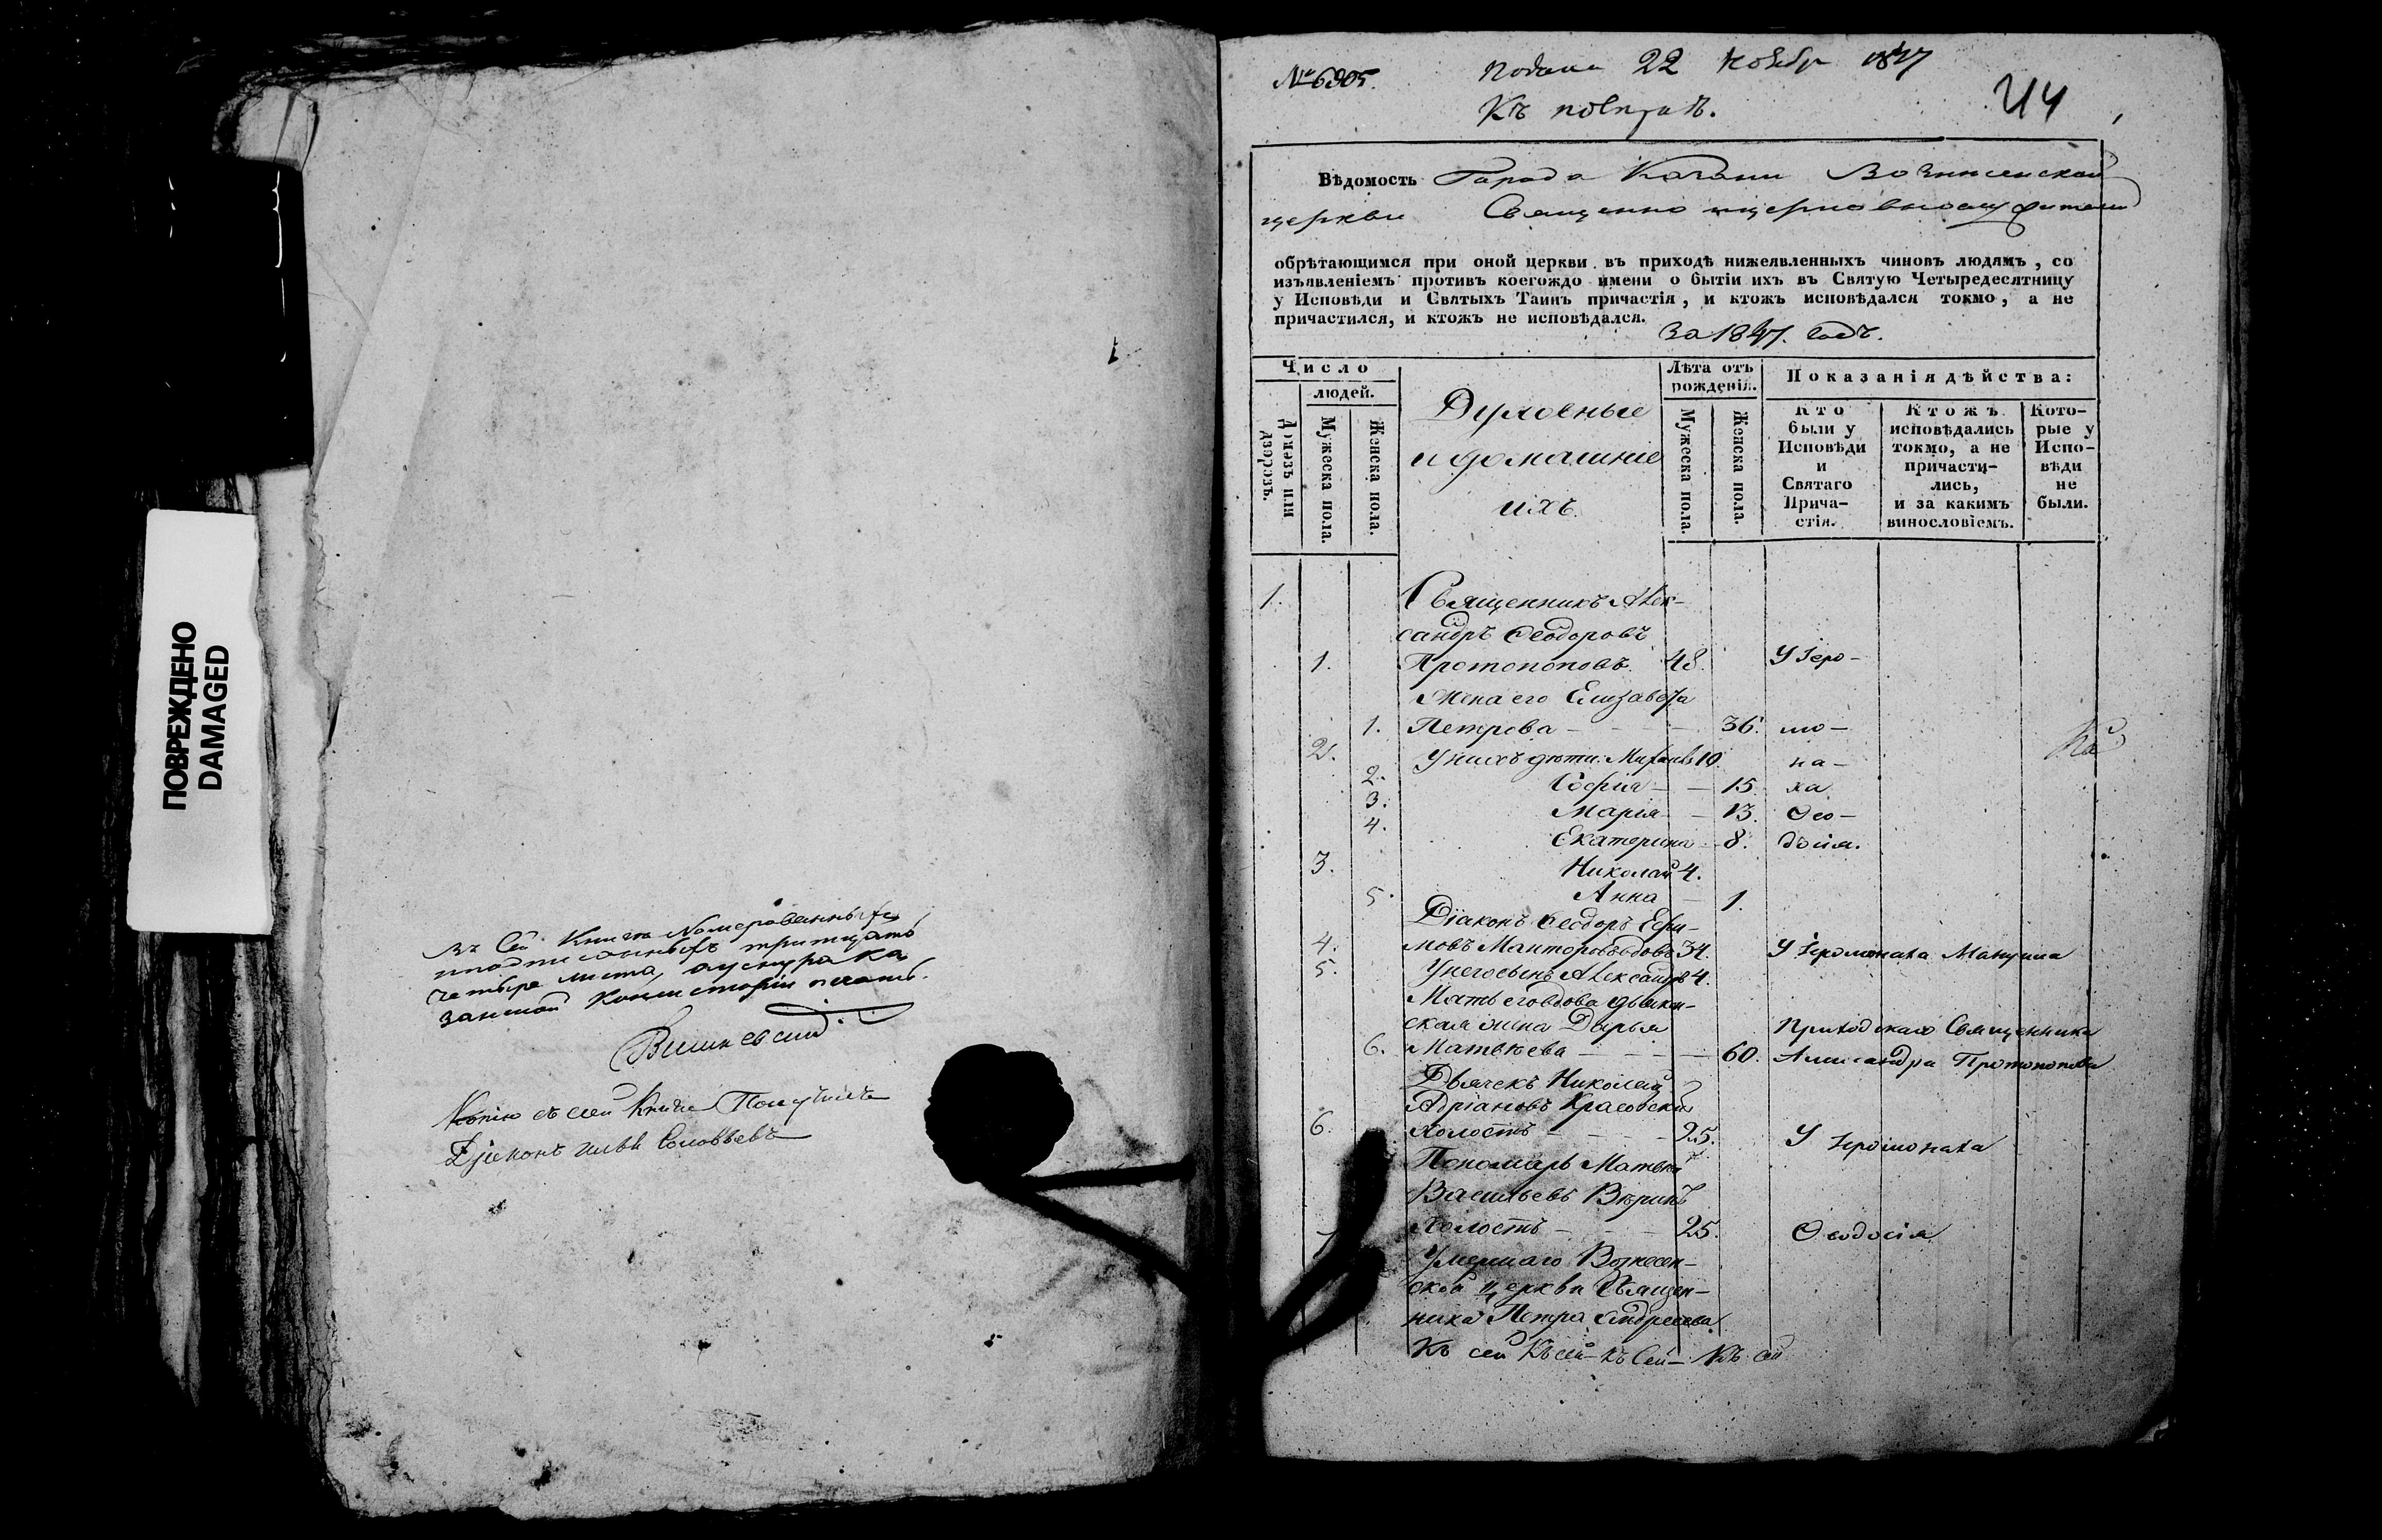 ПОВРЕЖДЕНО
DAMAGED
въ сей книгѣ номерованныхъ
четыре листа
Консисторіи печать.
Копію съ сей книги Получилъ
Діаконъ Соловьевъ
№ 6305.
Подана 22 Ноября 1847
Къ
Вѣдомость Города Казани Вознесенской
церкви Священно
обрѣтающимся при оной церкви въ приходѣ нижеявленныхъ чиновъ людямъ, со
изъявленіемъ противъ коегождо имени о бытіи ихъ въ Святую Четыредесятницу
у Исповѣди и Святыхъ Таинъ причастія, и ктожъ исповѣдался токмо, а не
причастился, и ктожъ не исповѣдался.
За 1847. годъ.
Число
людей.
Домовъ или дворовъ.
Мужеска пола.
Женска пола.
Духовные
и домашніе
ихъ.
Лѣта отъ
рожденія.
Мужеска пола.
Женска пола.
Показанія дѣйства:
Кто
были у
Исповѣди
и
Святаго
Прича-
стія.
Ктожъ
исповѣдались
токмо, а не
причасти-
лись,
и за какимъ
винословіемъ.
Кото-
рые у
Испо-
вѣди
не
были.
1. Священникъ Алек-
сандръ Ѳеодоровъ
1. Протопоповъ 48. У Іеро-
Жена его Елизавета
1. Петрова - - - 36. мо-
2. У нихъ дѣти: Михаилъ 10. на-
2. Софія - - 15. ха
3. Марія - - 13. Ѳео-
4. Екатерина - 8. досія.
3. Николай 4.
5. Анна - 1.
Діаконъ Ѳеодоръ Ефи-
4. мовъ 34. У Іеромонаха
5. У него сынъ Александръ 4.
Мать его вдова дьякон-
ская жена Дарья Приходскаго Священника
6. Матвѣева - - - 60. Александра Протопопова
Дьячекъ Николай
Адріановъ Красовскій
6. холостъ - - - 25. У Іеромонаха
Пономарь Матвѣй
Васильевъ
7. Холостъ - - 25. Ѳеодосія
Умершаго Вознесен-
ской церкви Священ-
ника Петра Андреева
Къ сей Къ сей - къ Сей - Къ сей